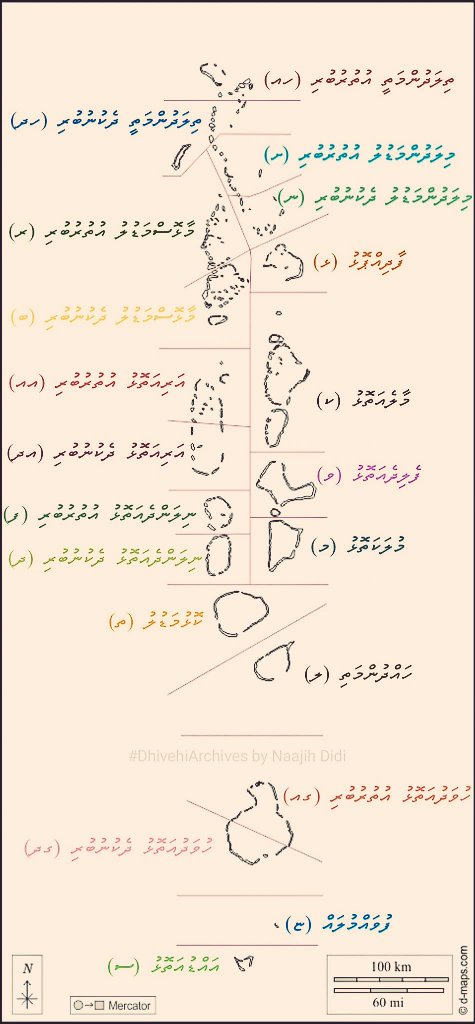 ތިލަދުންމަތީ އުތުރުބުރި (ހއ)
ތިލަދުންމަތީ ދެކުނުބުރި (ހދ)
މިލަދުންމަޑުލު އުތުރުބުރި (ށ)
މިލަދުންމަޑުލު ދެކުނުބުރި (ނ)
މާޅޮސްމަޑުލު އުތުރުބުރި (ރ)
ފާދިއްޕޮޅު (ޅ)
މާޅޮސްމަޑުލު ދެކުނުބުރި (ބ)
އަރިއަތޮޅު އުތުރުބުރި (އއ)
މާލެއަތޮޅު (ކ)
އަރިއަތޮޅު ދެކުނުބުރި (އދ)
ފެލިދެއަތޮޅު (ވ)
ނިލަންދެއަތޮޅު އުތުރުބުރި (ފ)
މުލަކަތޮޅު (މ)
ނިލަންދެއަތޮޅު ދެކުނުބުރި (ދ)
ކޮޅުމަޑުލު (ތ)
ހައްދުންމަތި (ލ)
#DhivehiArchives by Naajih Didi
ހުވަދުއަތޮޅު އުތުރުބުރި (ގއ)
ހުވަދުއަތޮޅު ދެކުނުބުރި (ގދ)
ފުވައްމުލައް (ޏ)
އައްޑުއަތޮޅު (ސ)
N
Mercator
100 km
60 mi
© d-maps.com